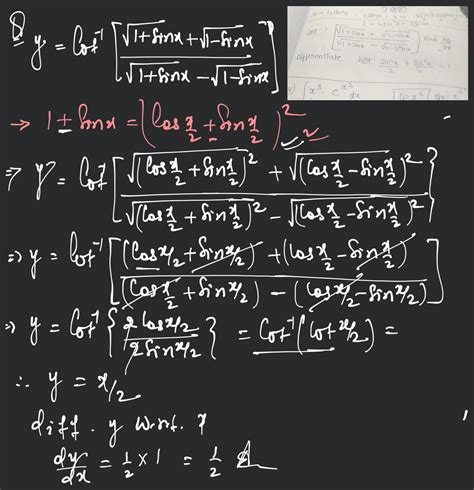 Q y = Cot⁻¹ [ (√(1+Sinx) + √(1-Sinx)) / (√(1+Sinx) - √(1-Sinx)) ]
→ 1 ± Sinx = (Cos x/2 ± Sin x/2)²
⇒ y = Cot⁻¹ [ (√(Cos x/2 + Sin x/2)² + √(Cos x/2 - Sin x/2)²) / (√(Cos x/2 + Sin x/2)² - √(Cos x/2 - Sin x/2)²) ]
⇒ y = Cot⁻¹ [ ((Cos x/2 + Sin x/2) + (Cos x/2 - Sin x/2)) / ((Cos x/2 + Sin x/2) - (Cos x/2 - Sin x/2)) ]
⇒ y = Cot⁻¹ { 2Cos x/2 / 2Sin x/2 } = Cot⁻¹ (Cot x/2) =
∴ y = x/2
diff. y w.r.t. x
dy/dx = 1/2 × 1 = 1/2